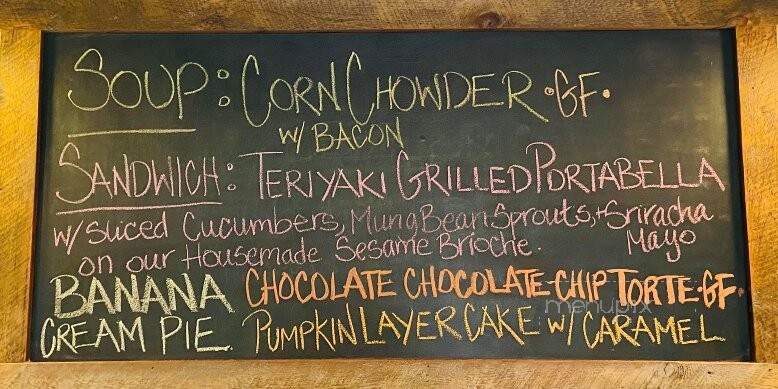 SOUP: CORN CHOWDER •GF•
W/ BACON
SANDWICH: TERIYAKI GRILLED PORTABELLA
w/ Sliced Cucumbers, Mung Bean Sprouts, + Sriracha Mayo
on our Housemade Sesame Brioche.
BANANA CREAM PIE.
CHOCOLATE CHOCOLATE-CHIP TORTE•GF•
PUMPKIN LAYER CAKE W/ CARAMEL
menupix